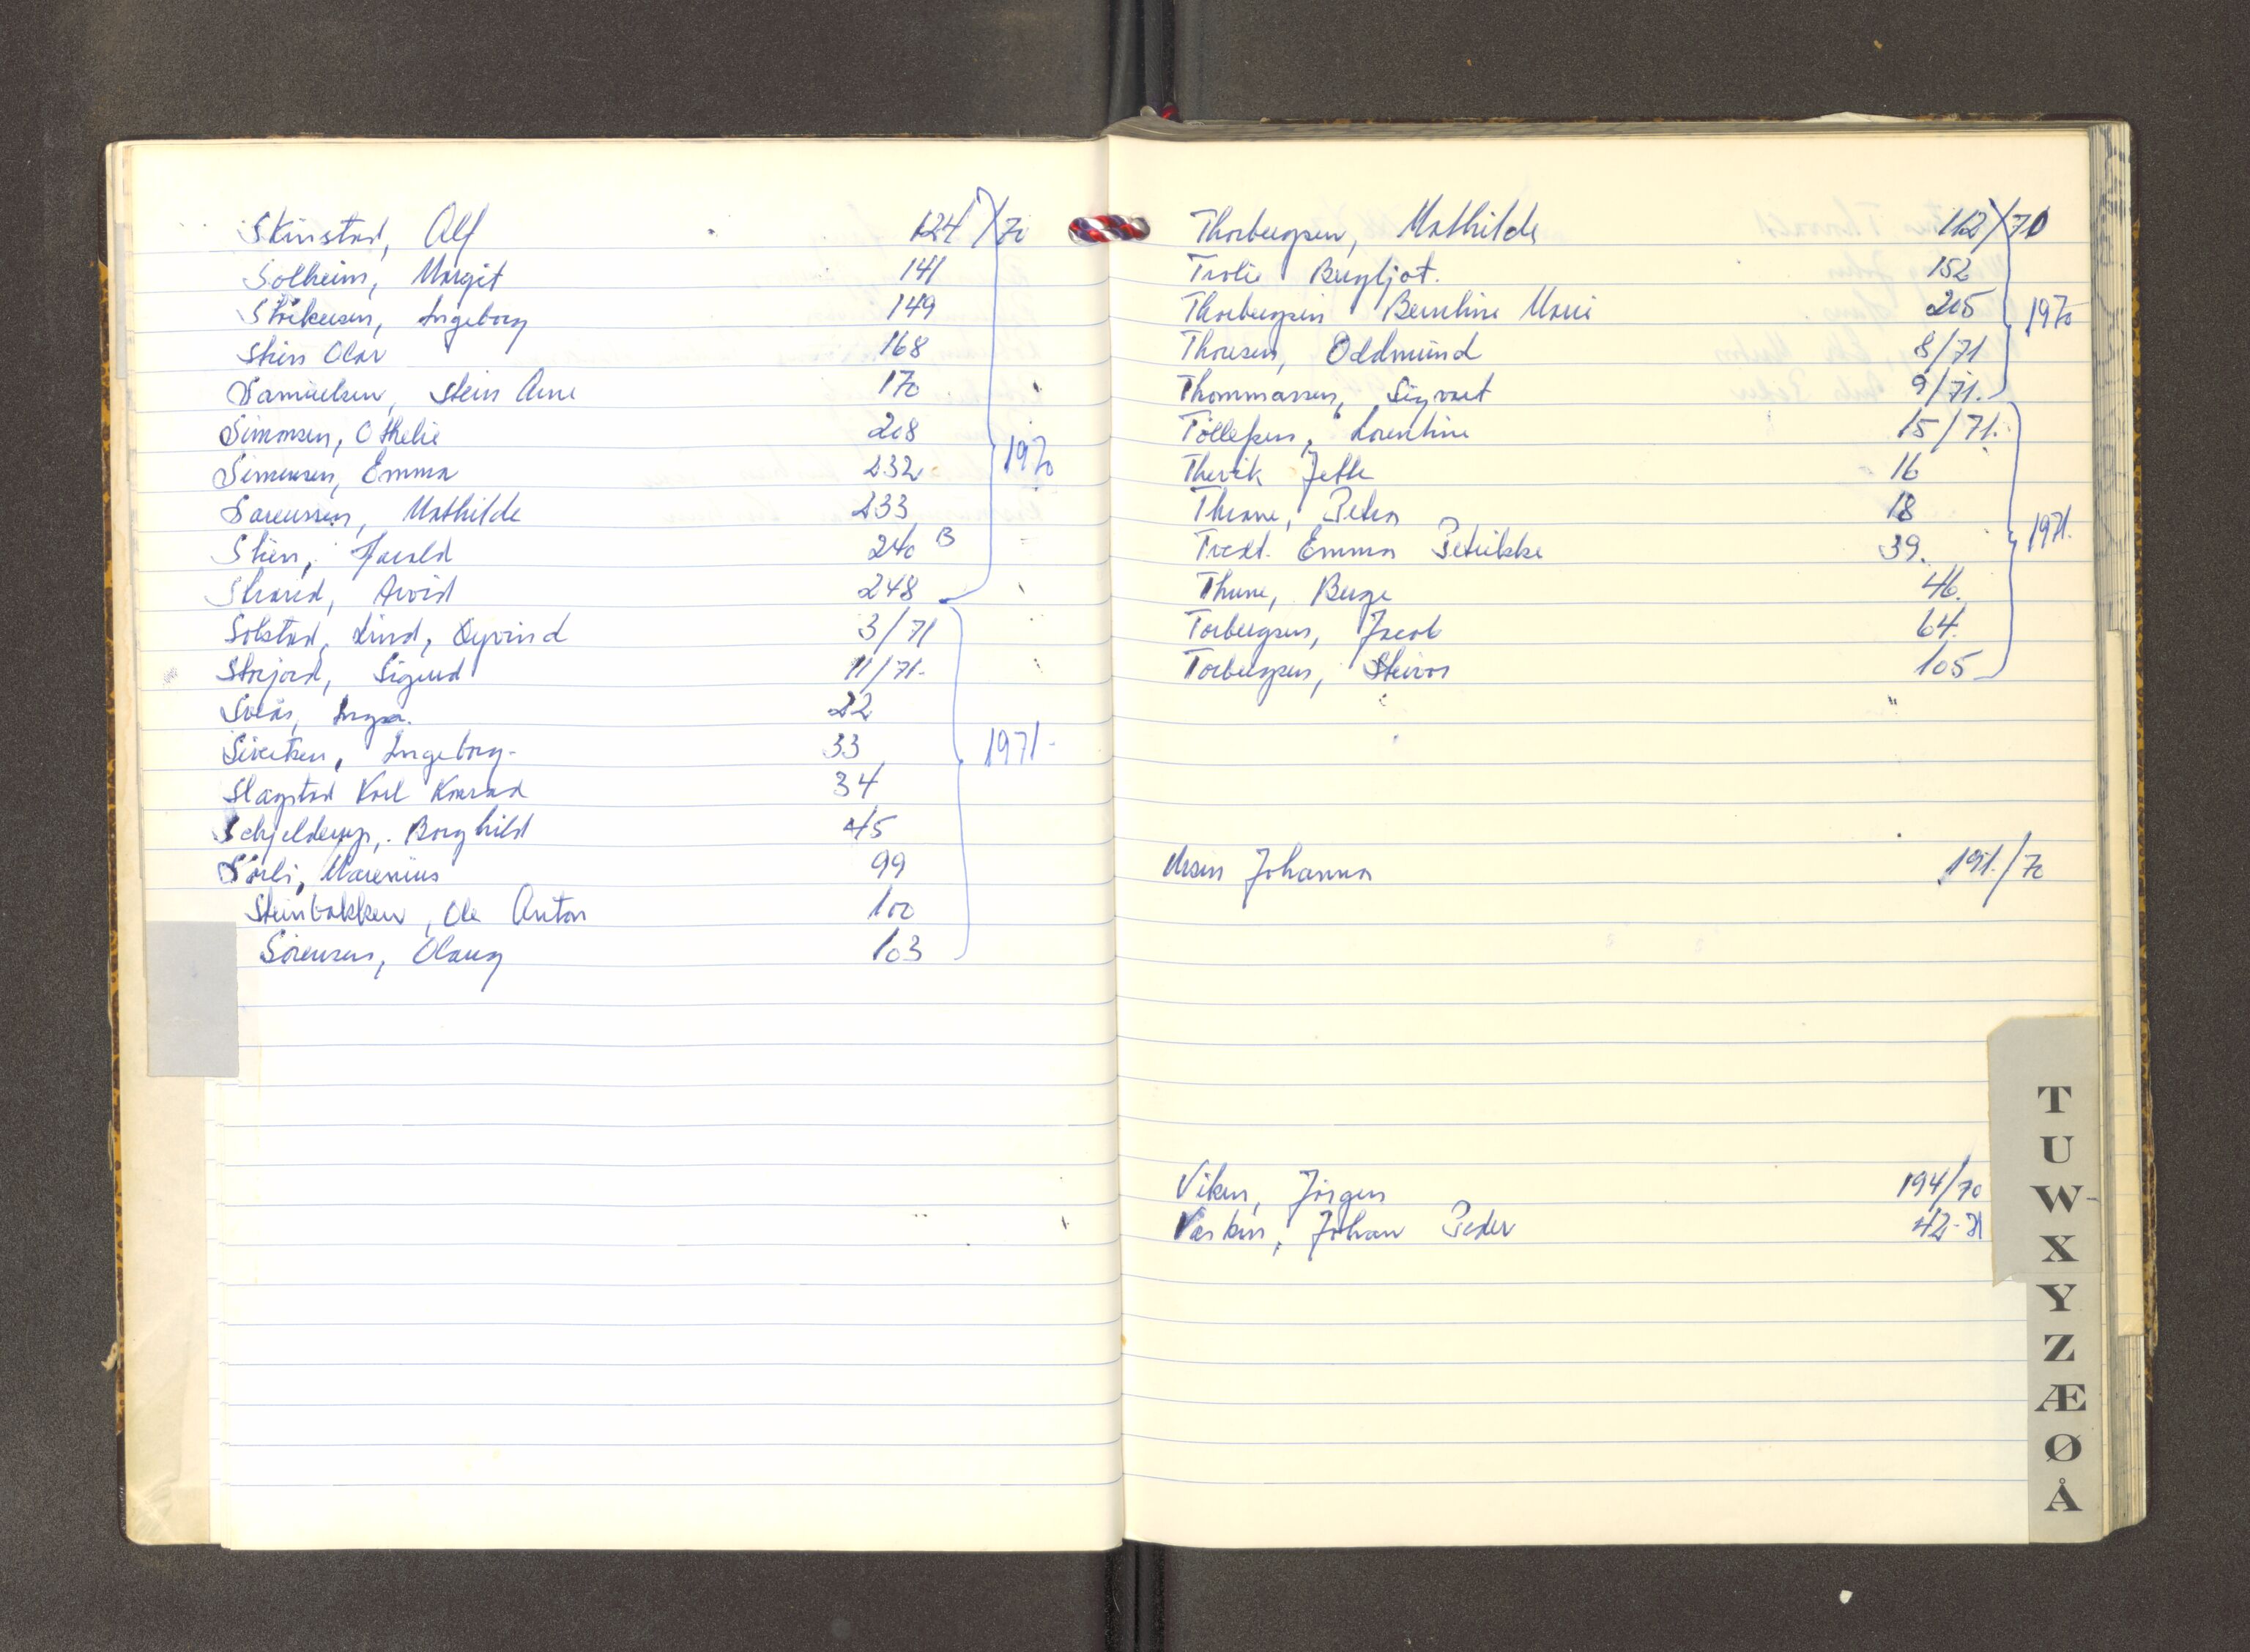 Skinstad, Alf 124/70
Solheim, Margit 141
Störkersen, Ingeborg 149
Stien Olav 168
Samuelsen, Stein Arne 170
Simonsen, Othelie 208
Simensen, Emma 232
Sørenssen, Mathilde 233
Stien, Harald 240 B
Strand, Arvid 248
1970
Solstad, Lind, Øyvind 3/71
Storjord, Sigurd 11/71.
Solås, Inga. 22
Sivertsen, Ingeborg 33
Slagstad Karl Konrad 34
Schjelderup, Borghild 45
Sörli, Marenius 99
Steinbakken, Ole Anton 100
Sörensen, Olaug 103
1971
Thorbergsen, Mathilde 112/70
Trolie Bergljot. 152
Thorbergsen Bernhine Marie 205
1970
Thoresen, Oddmund 8/71
Thommassen, Sigvart 9/71.
Töllefsen, Lorentine 15/71.
Thervik Jette 16
Thrane, Petra 18
Tvedt. Emma Petrikke 39.
1971.
Thune, Berge 46.
Torbergsen, Jacob 64.
Torbergsen, 105
Ursin Johanna 191./70
Viken, Jörgen 194/70
Johan Peder 42-71
T
U
W
X
Y
Z
Æ
Ø
Å